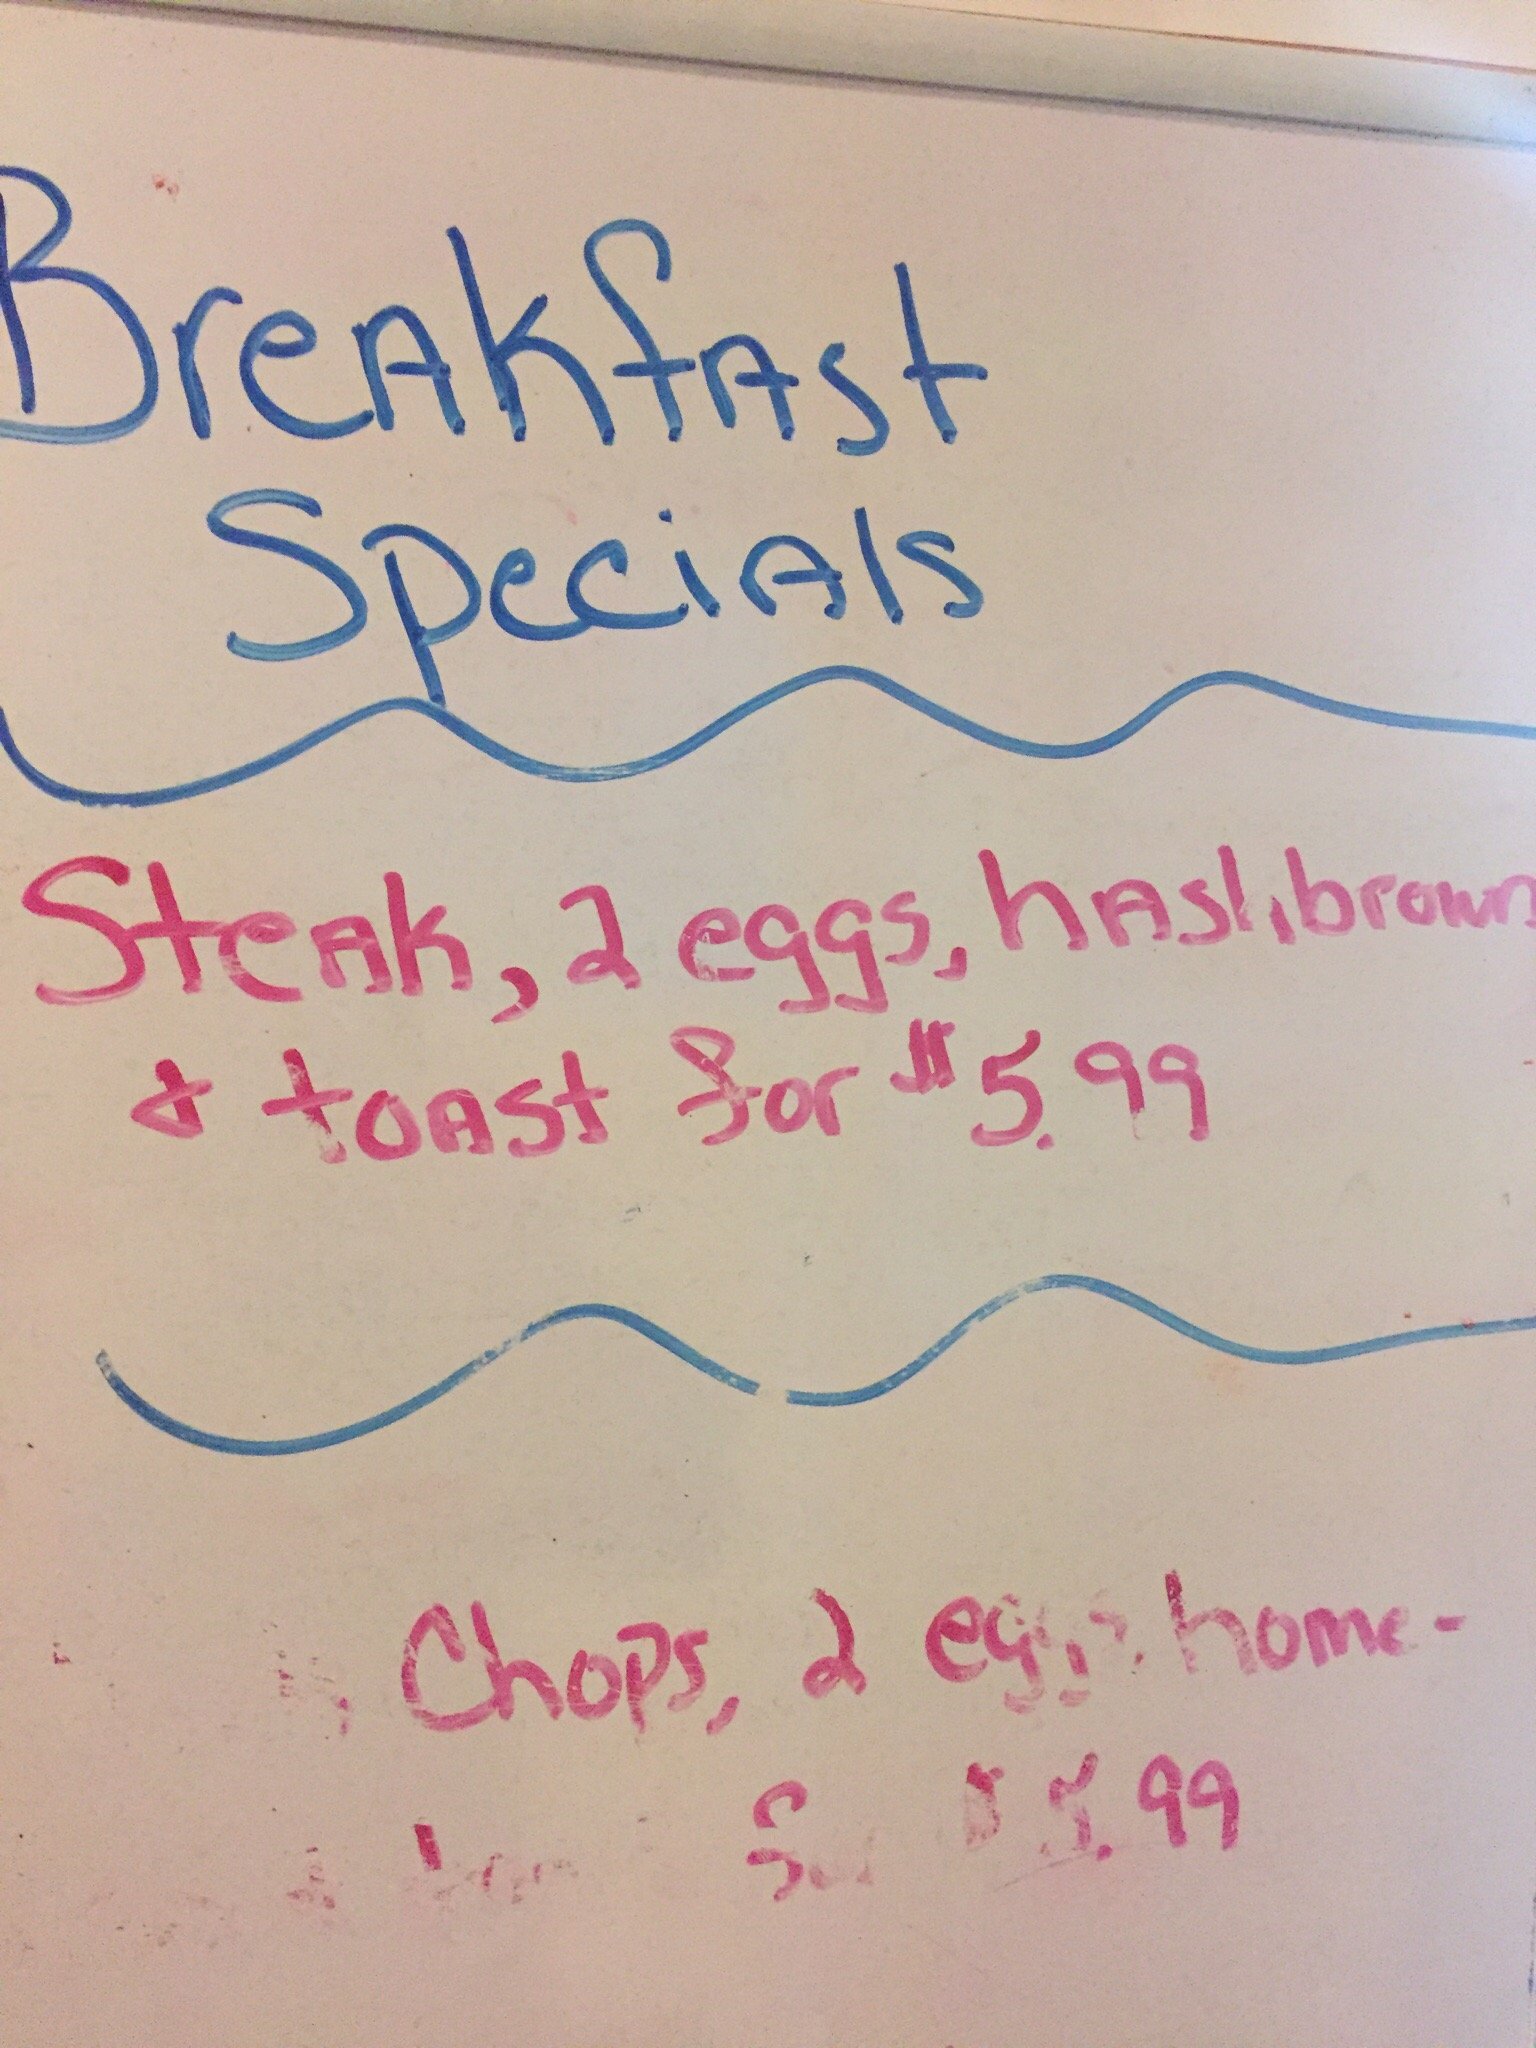 Breakfast
Specials
Steak, 2 eggs, hashbrown
& toast for $5.99
Chops, 2 eggs, home-
for $5.99